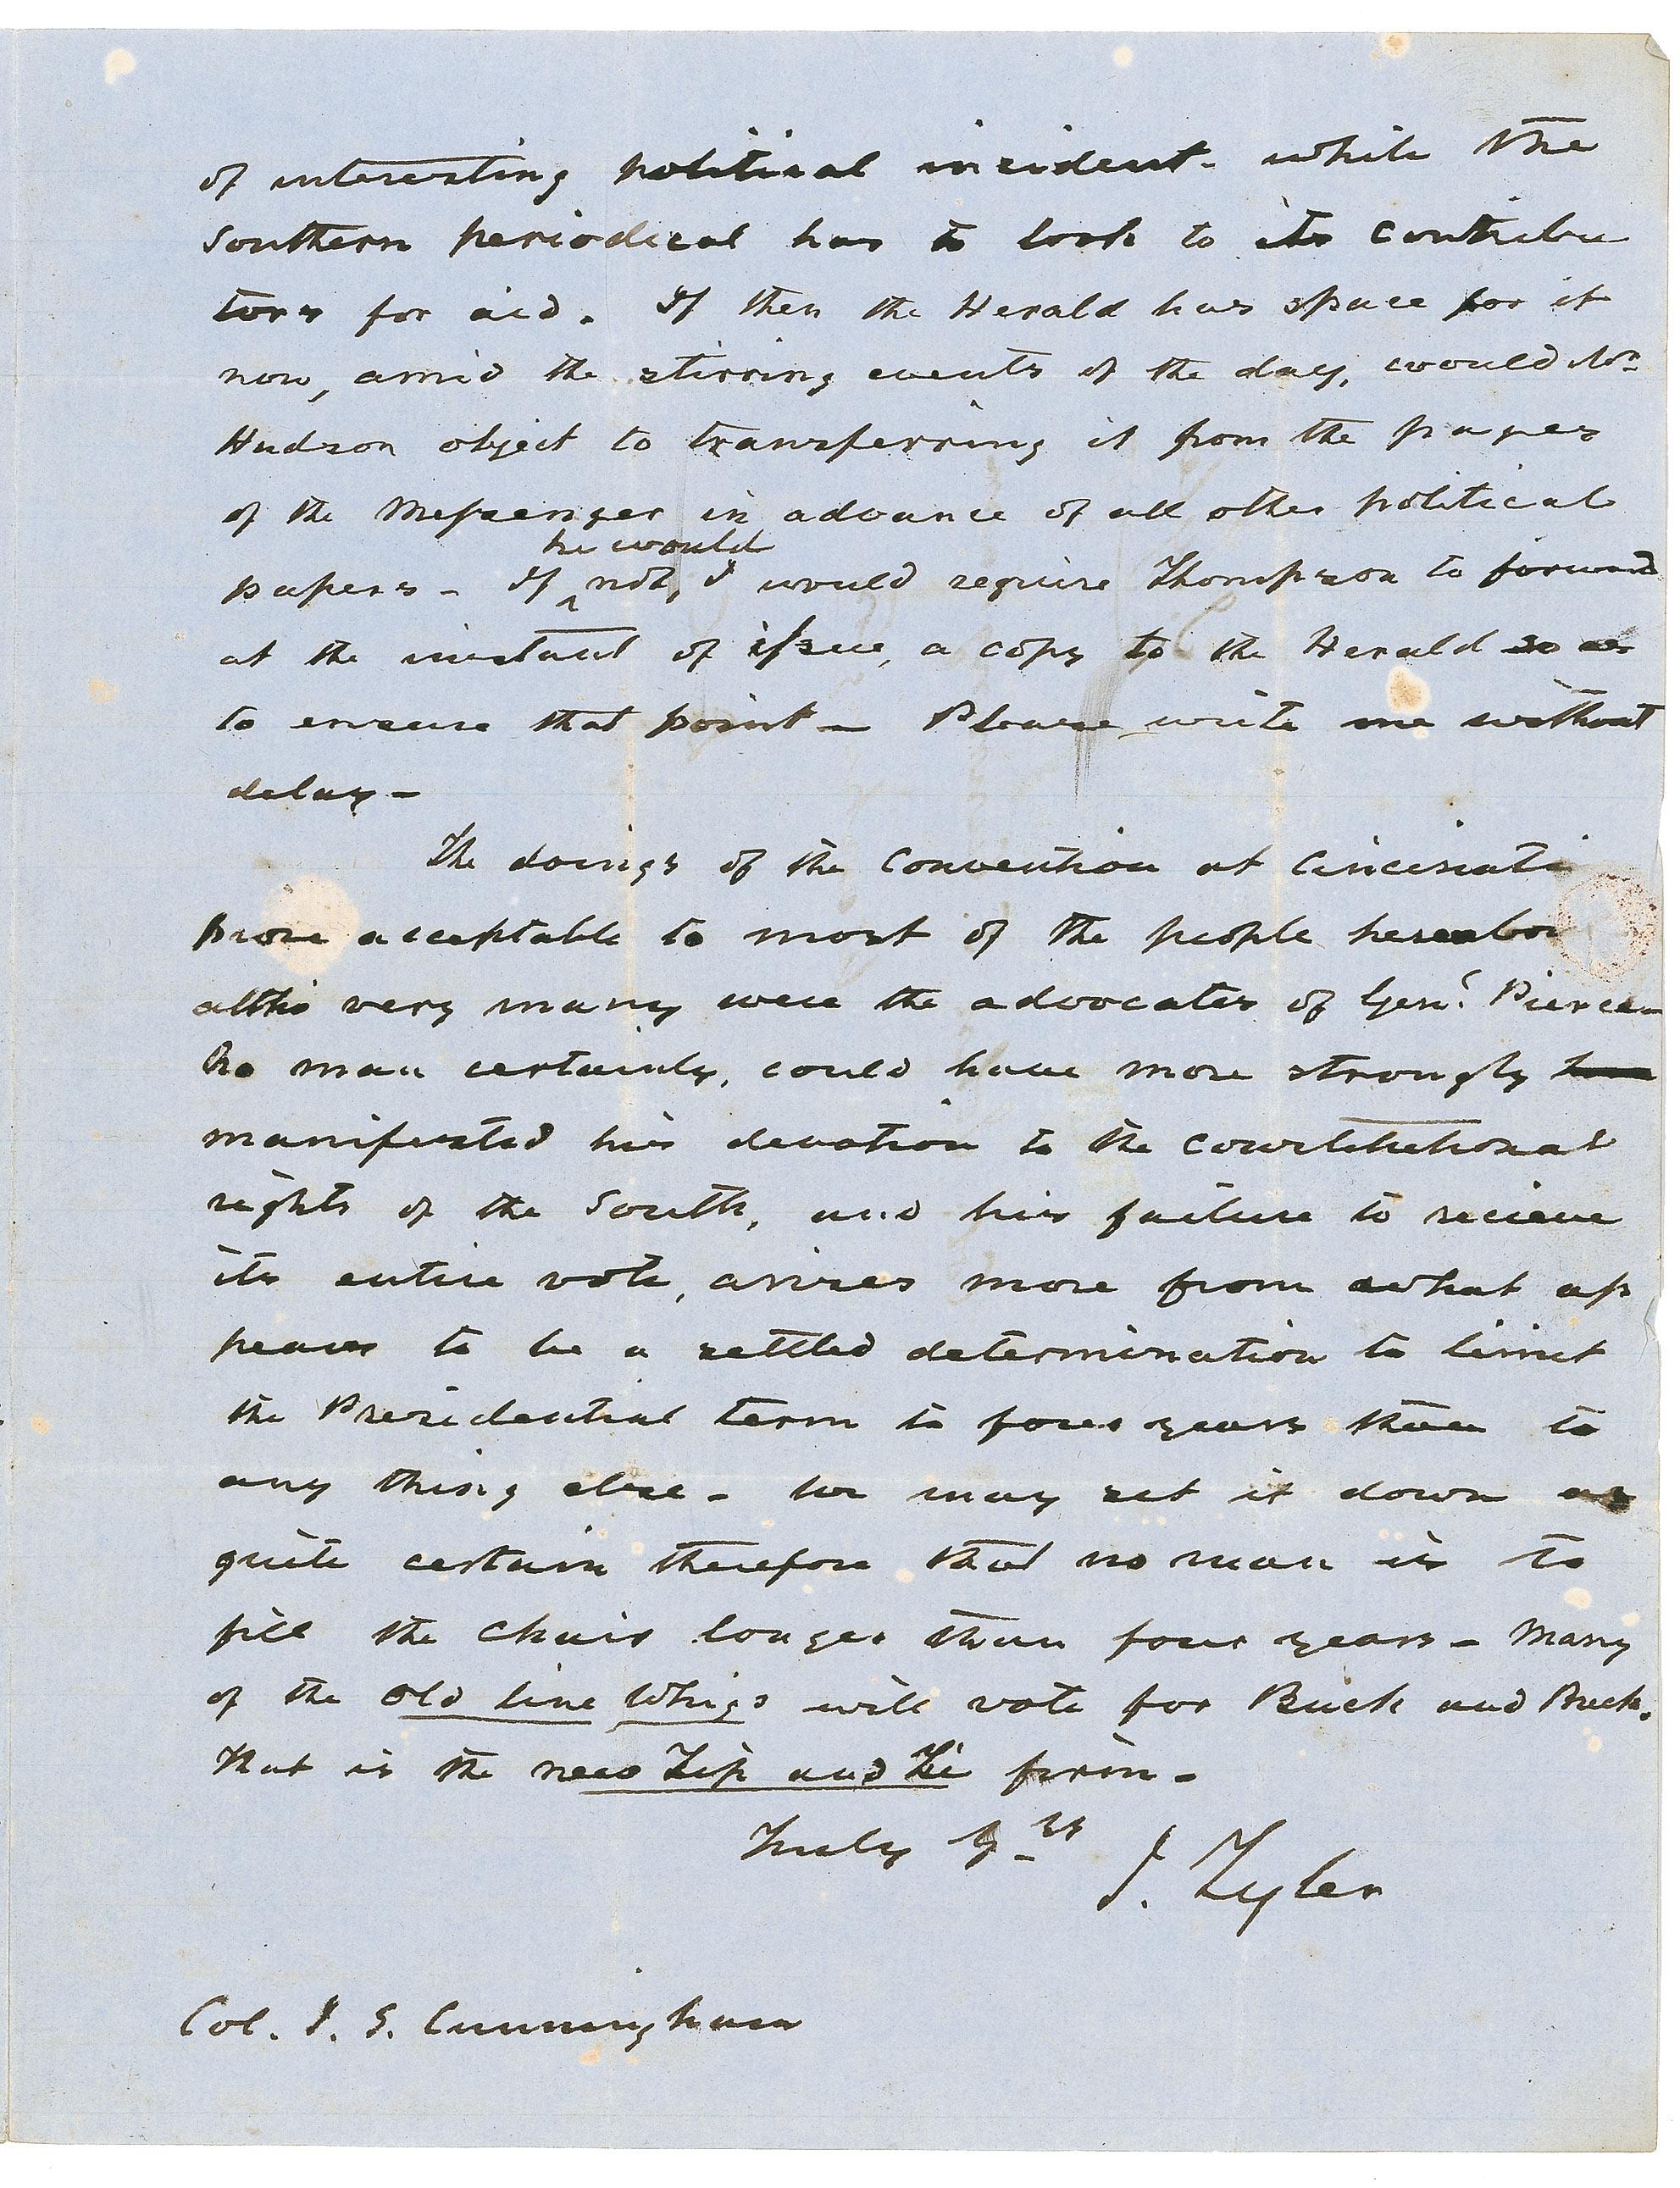 of interesting political incident - while the
Southern periodical has to look to its contribu
tors for aid. If then the Herald has space for it
now, amid the stirring events of the day, would Mr
Hudson object to transferring it from the pages
of the Messenger in advance of all other political
he would
papers - If not, I would require Thompson to forward
at the instant of issue, a copy to the Herald so as
to ensure that point - Please write me without
delay -
The doings of the Convention at Cincinati
prove acceptable to most of the people hereabou
altho very many were the advocates of Genl Pierce -
No man certainly, could have more strongly
manifested his devotion to the constitutional
rights of the South, and his failure to recieve
its entire vote, arises more from what ap
pears to be a settled determination to limit
the Presidential term to four years than to
any thing else - We may set it down as
quite certain therefore that no man is to
fill the chair longer than four years - Many
of the old line Whigs will vote for Buck and Breck.
That is the new Tip and Ti firm -
Truly Yrs J. Tyler
Col. J. S. Cunningham